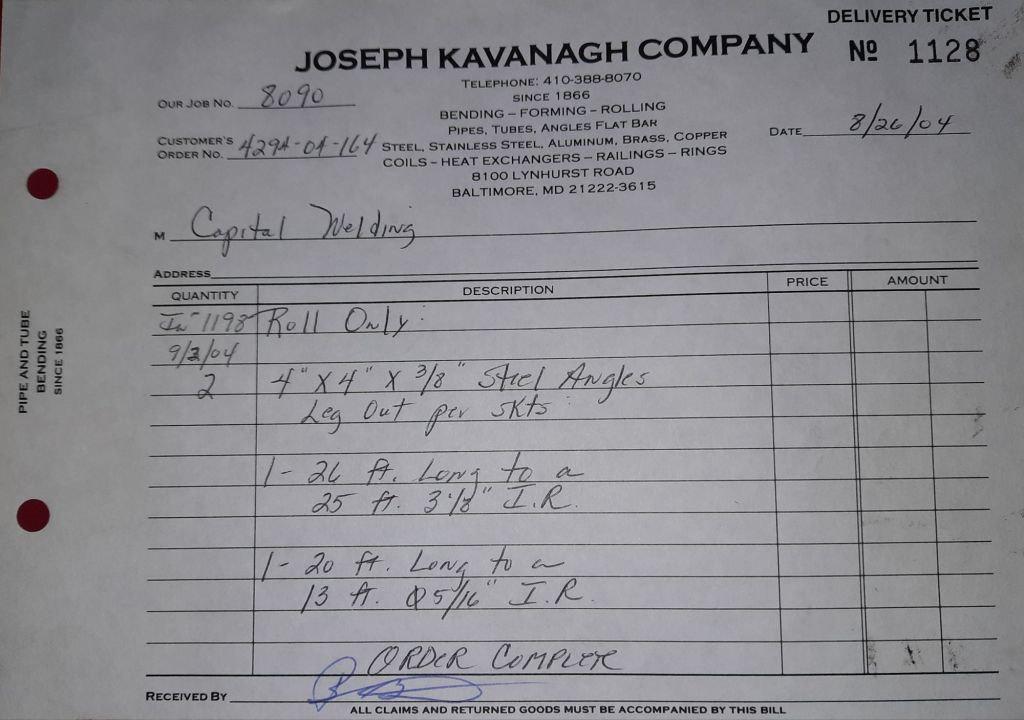 DELIVERY TICKET
JOSEPH KAVANAGH COMPANY
Nº 1128
TELEPHONE: 410-388-8070
SINCE 1866
OUR JOB NO. 8090
BENDING – FORMING – ROLLING
PIPES, TUBES, ANGLES FLAT BAR
CUSTOMER'S
ORDER NO. 429A-04-164
STEEL, STAINLESS STEEL, ALUMINUM, BRASS, COPPER
DATE 8/26/04
COILS – HEAT EXCHANGERS – RAILINGS – RINGS
8100 LYNHURST ROAD
BALTIMORE, MD 21222-3615
M Capital Welding
ADDRESS
QUANTITY DESCRIPTION PRICE AMOUNT
1198 Roll Only:
9/2/04
2 4" X 4" X 3/8" Steel Angles
Leg Out per skts
1- 26 ft. Long to a
25 ft. 3 1/8" I.R.
1- 20 ft. Long to a
13 ft. 5/16" I.R.
ORDER COMPLETE
RECEIVED BY
ALL CLAIMS AND RETURNED GOODS MUST BE ACCOMPANIED BY THIS BILL
PIPE AND TUBE
BENDING
SINCE 1866